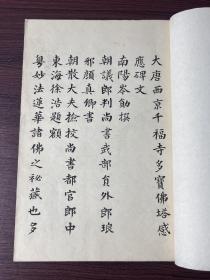 大唐西京千福寺多寶佛塔感
應碑文
南陽岑勛撰
朝議郎判尚書武部員外郎琅
邪顏真卿書
朝散大夫撿挍尚書都官郎中
東海徐浩題額
粵妙法蓮華諸佛之秘藏也多